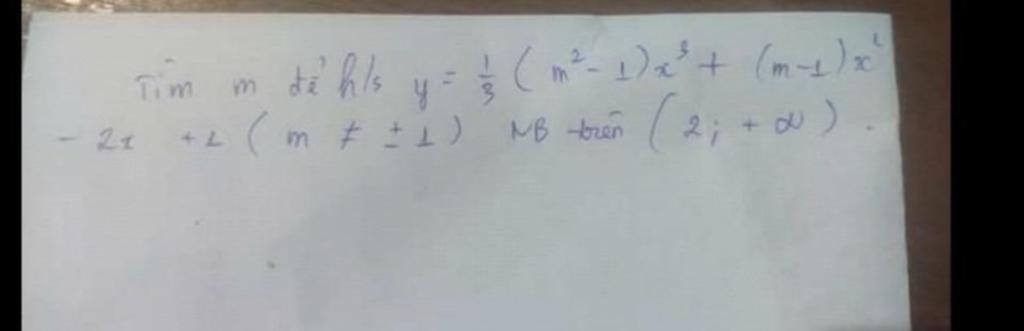 Tìm m để h/s y = 1/3 ( m² - 1)x³ + (m-1)x²
- 2x + 1 ( m ≠ ± 1 ) NB trên ( 2 ; + ∞ ) .